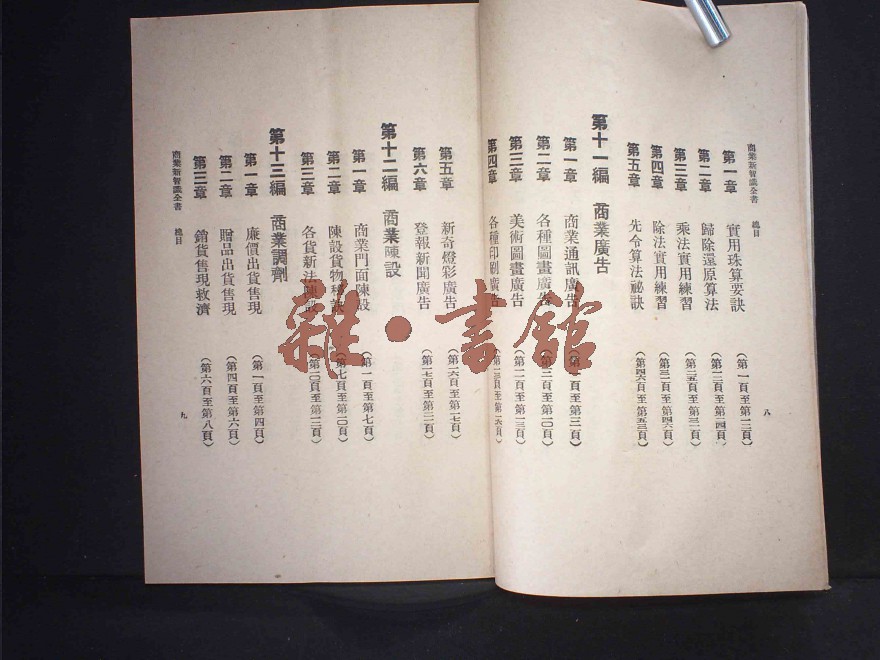 商業新智識全書 總目
第一章 實用珠算要訣 (第一頁至第一二頁)
第二章 歸除還原算法 (第一二頁至第二四頁)
第三章 乘法實用練習
第四章 除法實用練習
第五章 先令算法祕訣
第十一編 商業廣告
第一章 商業通訊廣告 (第一頁至第三頁)
第二章 各種圖畫廣告 (第三頁至第一〇頁)
第三章 美術圖畫廣告
第四章 各種印刷廣告
八
第五章 新奇燈彩廣告
第六章 登報新聞廣告
第十二編 商業陳設
第一章 商業門面陳設 (第一頁至第七頁)
第二章 陳設貨物祕訣 (第七頁至第一〇頁)
第三章 各貨新法陳設
第十三編 商業調劑
第一章 廉價出貨售現 (第一頁至第四頁)
第二章 贈品出貨售現 (第四頁至第六頁)
第三章 銷貨售現救濟 (第六頁至第八頁)
商業新智識全書 總目
九
雜·書館